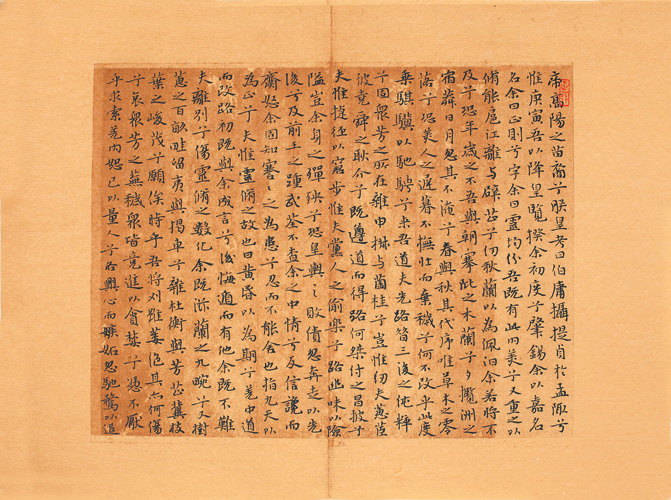 帝高陽之苗裔兮朕皇考曰伯庸攝提貞於孟陬兮
惟庚寅吾以降皇覽揆余初度兮肇錫余以嘉名
名余曰正則兮字余曰靈均紛吾既有此內美兮又重之以
脩能扈江離與辟芷兮紉秋蘭以為佩汩余若將不
及兮恐年歲之不吾與朝搴阰之木蘭兮夕攬洲之
宿莽日月忽其不淹兮春與秋其代序唯草木之零
落兮恐美人之遲暮不撫壯而棄穢兮何不改乎此度
乘騏驥以馳騁兮來吾道夫先路昔三後之純粹
兮固衆芳之所在雜申椒與菌桂兮豈惟紉夫蕙茝
彼堯舜之耿介兮既遵道而得路何桀紂之昌披兮
夫惟捷徑以窘步惟夫黨人之偷樂兮路幽昧以險
隘豈余身之憚殃兮恐皇輿之敗績忽奔走以先
後兮及前王之踵武荃不查余之中情兮反信讒而
齌怒余固知謇〻之為患兮忍而不能舍也指九天以
為正兮夫惟靈脩之故也曰黃昏以為期兮羌中道
而改路初既與余成言兮後悔遁而有他余既不難
夫離別兮傷靈脩之數化余既滋蘭之九畹兮又樹
蕙之百畝畦留夷與揭車兮雜杜衡與芳芷冀枝
葉之峻茂兮願俟時乎吾將刈雖萎絕其亦何傷
兮哀衆芳之蕪穢衆皆競進以貪婪兮憑不厭
乎求索羌內恕己以量人兮各興心而嫉妒忽馳騖以追